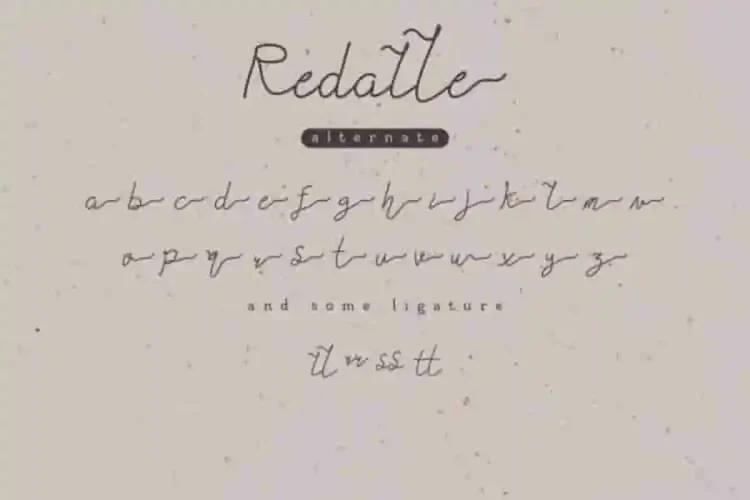 Redalle
alternate
a b c d e f g h i j k l m n
o p q r s t u v w x y z
and some ligature
ll rr ss tt